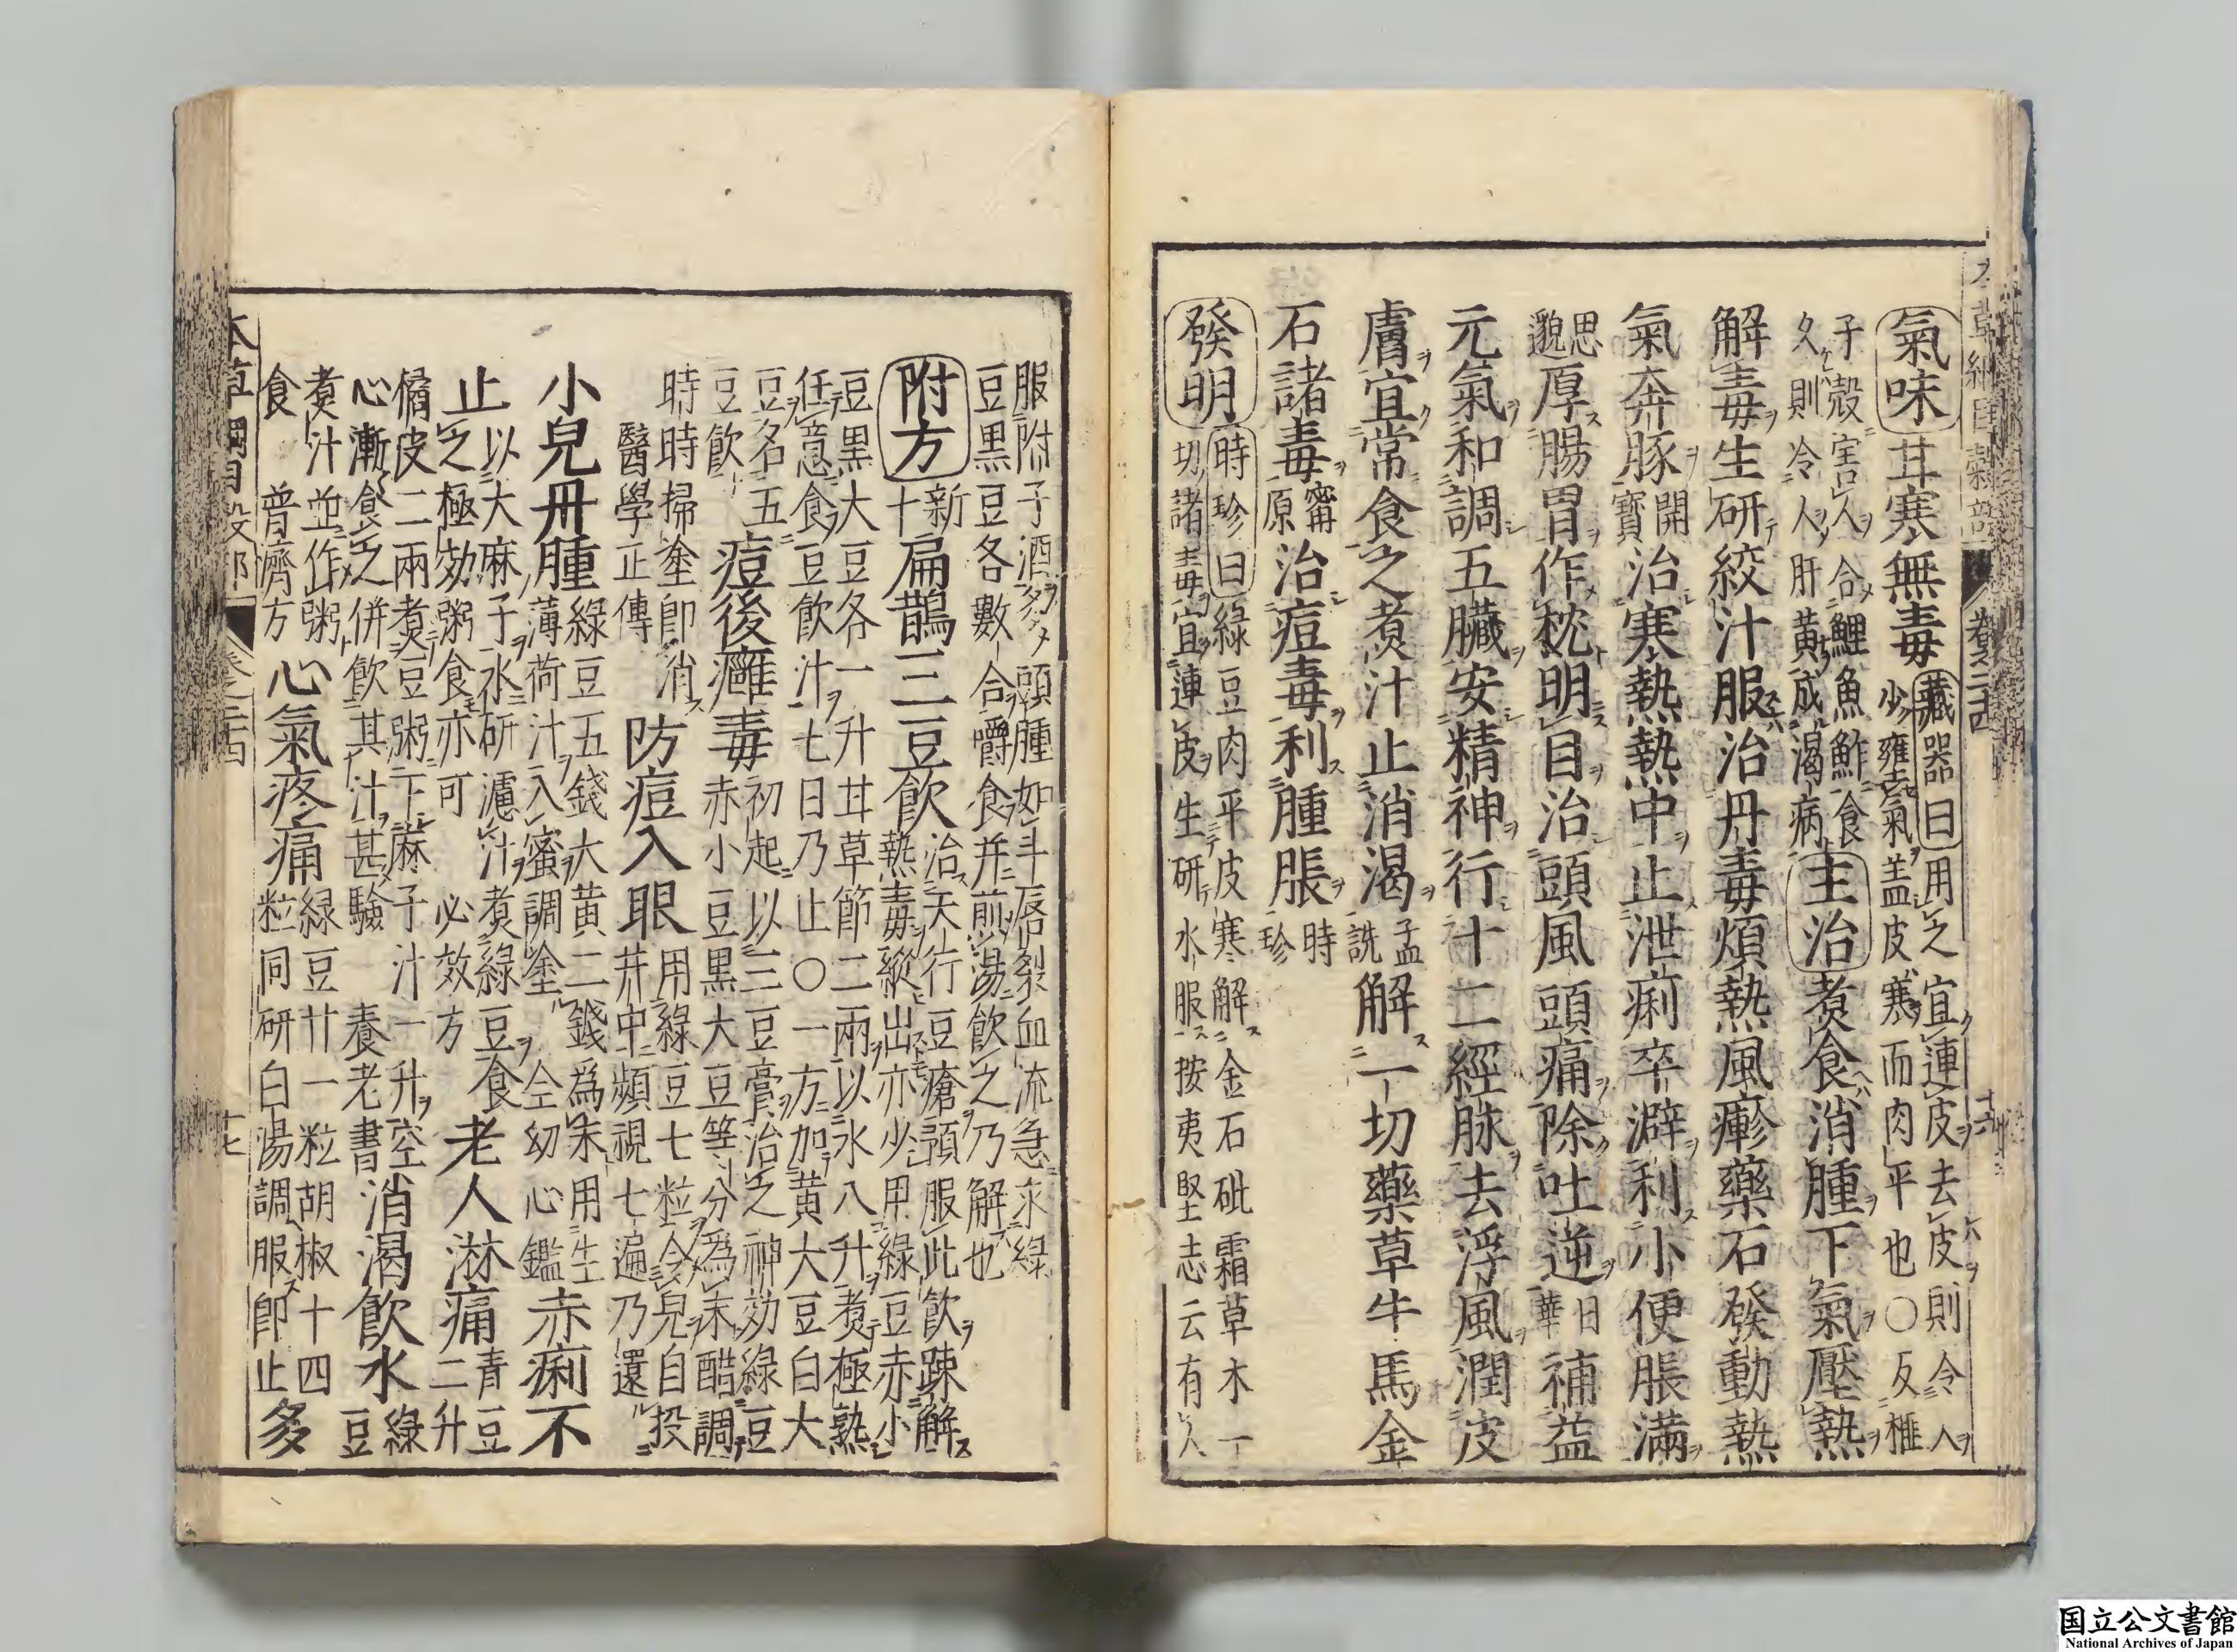 氣味甘寒無毒藏器曰用之宜連皮去皮則令人
少壅氣盖皮寒而肉平也○反榧
子殻害人合鯉魚鮓食
久則令人肝黄成渴病主治煮食消腫下氣壓熱
解毒生研絞汁服治丹毒煩熱風瘮藥石發動熱
氣奔豚開
寶治寒熱熱中止泄痢卒澼利小便脹滿
思
邈厚腸胃作枕明目治頭風頭痛除吐逆日
華補益
元氣和調五臟安精神行十二經脉去浮風潤皮
膚宜常食之煮汁止消渴孟
詵解一切藥草牛馬金
石諸毒寗
原治痘毒利腫脹時
珍
發明時珍曰綠豆肉平皮寒解金石砒霜草木一
切諸毒宜連皮生研水服按夷堅志云有人
服附子酒多頭腫如斗唇裂血流急求綠
豆黒豆各數合嚼食并煎湯飲之乃解也
附方新
十扁鵲三豆飲治天行豆瘡預服此飲踈解
熱毒縱出亦少用綠豆赤小
豆黒大豆各一升甘草節二兩以水八升煮極熟
任意食豆飲汁七日乃止○一方加黄大豆白大
豆名五
豆飲痘後癰毒初起以三豆膏治之神効綠豆
赤小豆黒大豆等分爲末醋調
時時掃塗即消
醫學正傳防痘入眼用綠豆七粒令兒自投
井中頻視七遍乃還
小兒丹腫綠豆五錢大黄二錢爲末用生
薄荷汁入蜜調塗全幼心鑑赤痢不
止以大麻子水研濾汁煮綠豆食
之極効粥食亦可必效方老人淋痛青豆
二升
橘皮二兩煮豆粥下麻子汁一升空
心漸食之併飲其汁甚驗養老書消渴飲水綠
豆
煮汁並作粥
食普濟方心氣疼痛綠豆廿一粒胡椒十四
粒同研白湯調服即止多
本草綱目穀部卷之二十四十七
卷之二十四
国立公文書館
National Archives of Japan